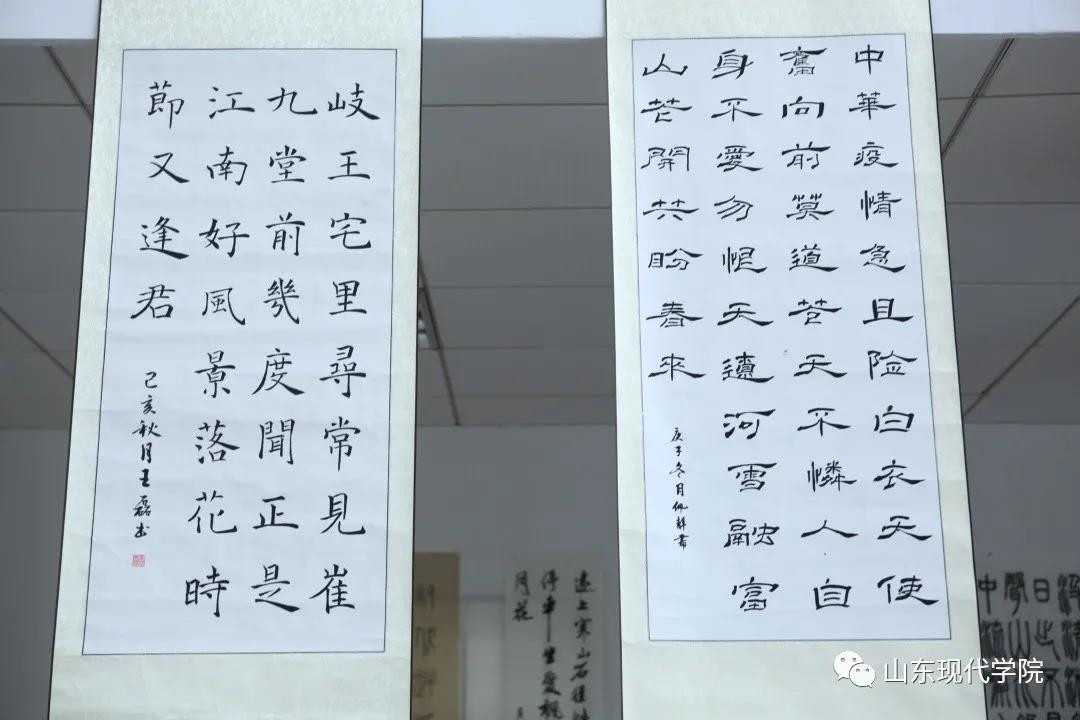 岐王宅里尋常見崔
九堂前幾度聞正是
江南好風景落花時
節又逢君
己亥秋月王磊书
中華疫情急且险白衣天使
奮向前莫道苍天不憐人自
身不愛勿恨天遺河雪融富
山芒開共盼春來
庚子冬月佩書
遠上寒山石徑
停車坐愛楓
月花
山东现代学院